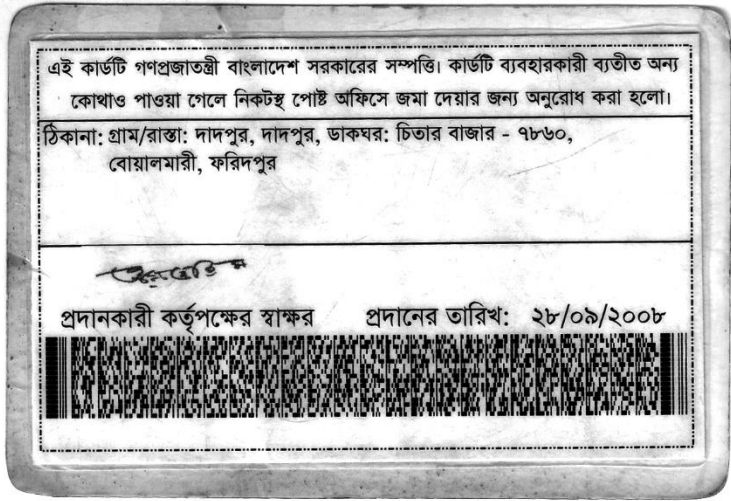 এই কার্ডটি গণপ্রজাতন্ত্রী বাংলাদেশ সরকারের সম্পত্তি। কার্ডটি ব্যবহারকারী ব্যতীত অন্য
কোথাও পাওয়া গেলে নিকটস্থ পোষ্ট অফিসে জমা দেয়ার জন্য অনুরোধ করা হলো।
ঠিকানা: গ্রাম/রাস্তা: দাদপুর, দাদপুর, ডাকঘর: চিতার বাজার - ৭৮৬০,
বোয়ালমারী, ফরিদপুর
প্রদানকারী কর্তৃপক্ষের স্বাক্ষর প্রদানের তারিখ: ২৮/০৯/২০০৮